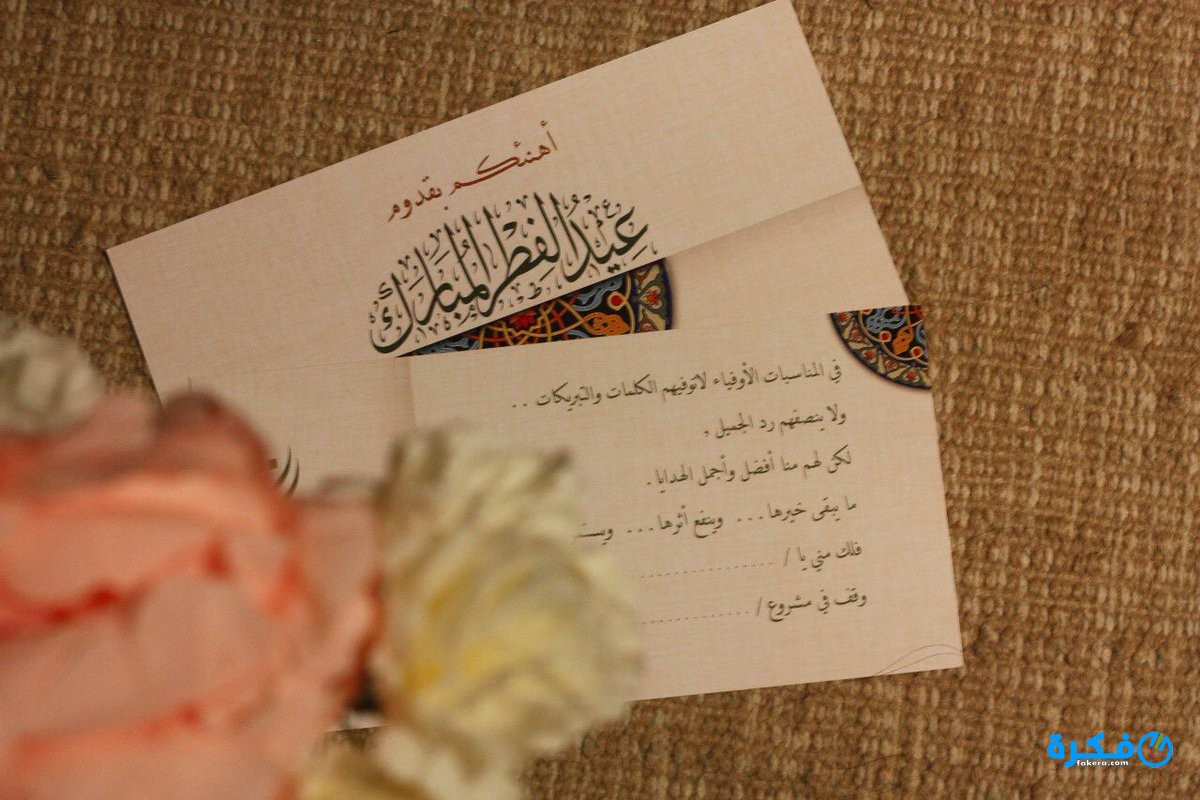 أهنئكم بقدوم
عِيْدُ الفِطْرِ المُبَارَك
في المناسبات الأوفياء لاتوفيهم الكلمات والتبريكات ..
ولا ينصفهم رد الجميل ,
لكن لهم منا أفضل وأجمل الهدايا .
ما يبقى خيرها ... وينفع أثرها ...
فلك مني يا / ................
وقف في مشروع / ................
فكرة
fakera.com